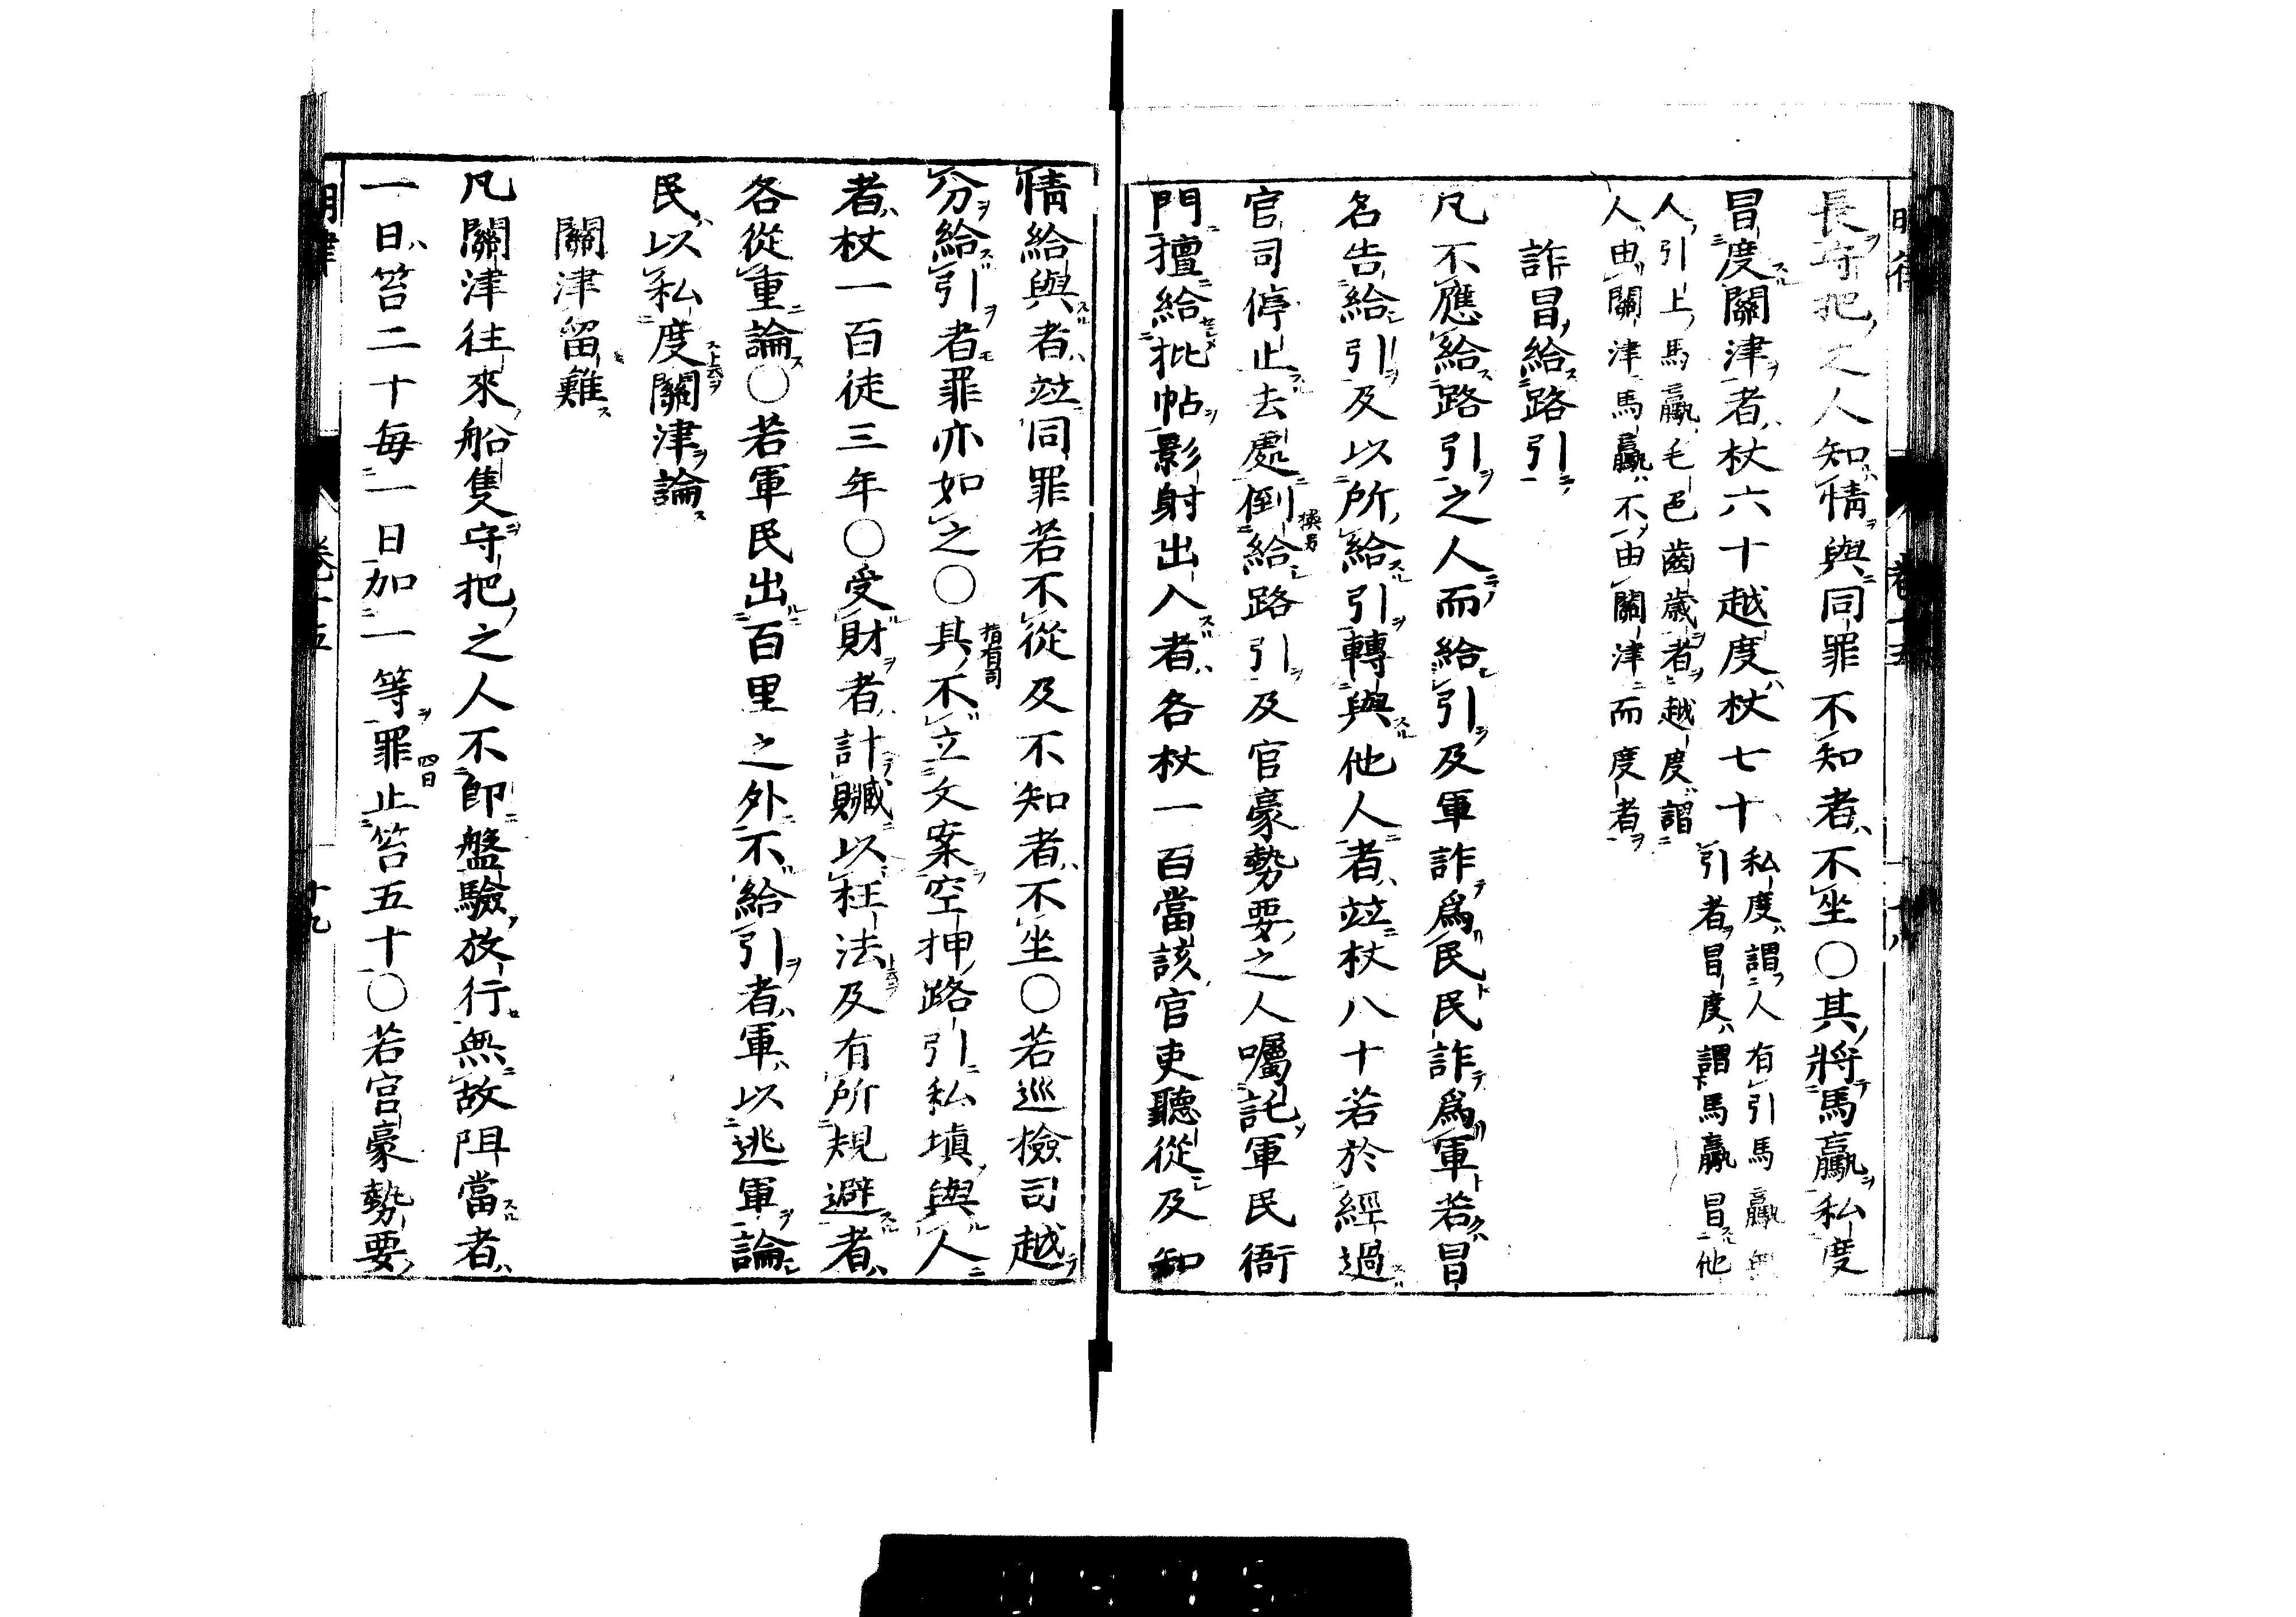 長守把之人知情與同罪不知者不坐○其將馬驘私度
冒度關津者杖六十越度杖七十私度謂人有引馬驘無
引者冒度謂馬驘冒他
人引上馬驘毛色齒歲者越度謂
人由關津馬驘不由關津而度者
詐冒給路引
凡不應給路引之人而給引及軍詐爲民民詐爲軍若冒
名告給引及以所給引轉與他人者竝杖八十若於經過
官司停止去處倒給路引及官豪勢要之人囑託軍民衙
門擅給批帖影射出入者各杖一百當該官吏聽從及知
情給與者竝同罪若不從及不知者不坐○若巡檢司越
分給引者罪亦如之○其不立文案空押路引私塡與人
者杖一百徒三年○受財者計贓以枉法及有所規避者
各從重論○若軍民出百里之外不給引者軍以逃軍論
民以私度關津論
關津留難
凡關津往來船隻守把之人不卽盤驗放行無故阻當者
一日笞二十每一日加一等罪止笞五十○若官豪勢要
明律 卷十五 十九